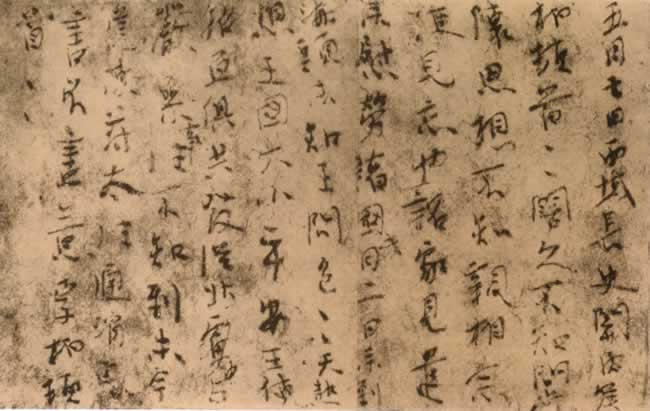 五月七日西域長史關內侯
柏頓首々々闊久不知問常
懷思想不知親相念
便見忘也詔家見遣
來慰勞諸國此月二日來到
海頭未知王問邑々天熱
想王國大小平安王使
招亘俱共發從北虜中與
嚴參事往不知到未今
遣使苻太往通消息
書不盡意李柏頓
首々々